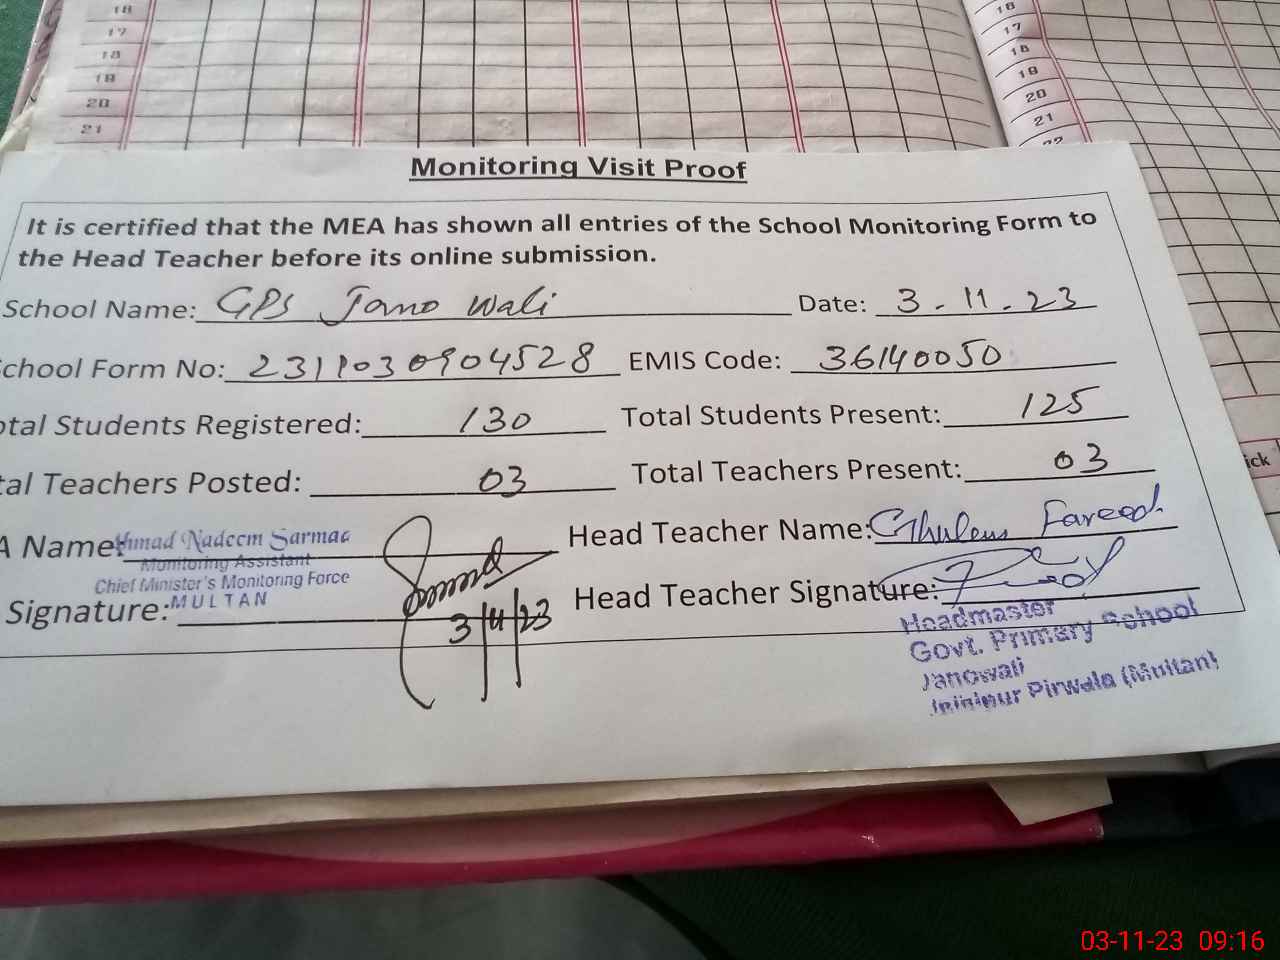 16
17
18
19
20
21
16
17
18
19
20
21
22
Monitoring Visit Proof
It is certified that the MEA has shown all entries of the School Monitoring Form to
the Head Teacher before its online submission.
School Name: GPS Jano Wali Date: 3-11-23
chool Form No: 2311030904528 EMIS Code: 36140050
otal Students Registered: 130 Total Students Present: 125
tal Teachers Posted: 03 Total Teachers Present: 03
A Name: Ahmad Nadeem Sarmad Head Teacher Name: Ghulam Fareed
Monitoring Assistant
Chief Minister's Monitoring Force
MULTAN
Signature: 3/11/23 Head Teacher Signature:
Headmaster
Govt. Primary School
Janowali
Pirwala (Multan)
ick
03-11-23 09:16